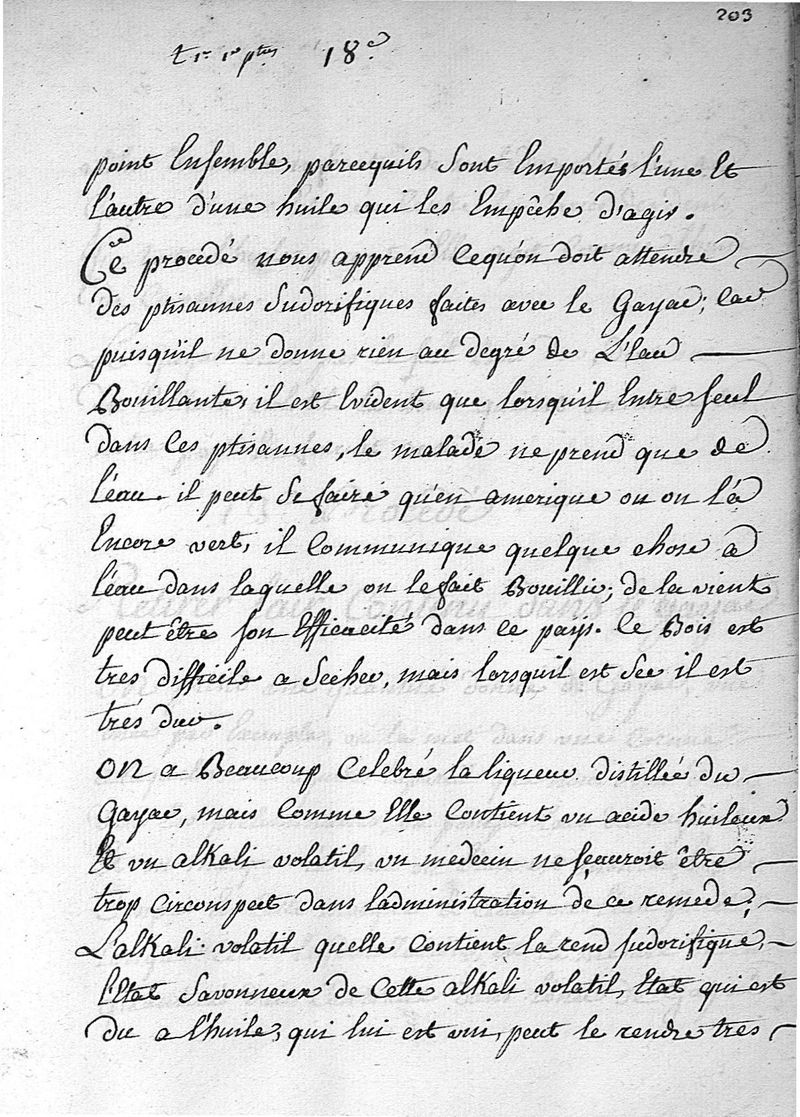 203
18e
point Ensemble, parcequils sont Emportés l'une Et
l'autre d'une huile qui les Empêche d'agir.
Ce procedé nous apprend cequ'on doit attendre
des ptisannes sudorifiques faites avec le Gayac; car
puisqu'il ne donne rien au degré de L'Eau
Bouillante, il est Evident que lorsqu'il Entre seul
dans ces ptisannes, le malade ne prend que de
l'eau. il peut se faire qu'en amerique ou on l'a
Encore vert, il communique quelque chose a
l'eau dans laquelle on le fait Bouillir; de la vient
peut être son Efficacité dans ce pays. Ce Bois est
tres difficile a secher, mais lorsquil est sec il est
trés dur.
ON a Beaucoup Celebré la liqueur distillée du
Gayac, mais comme Elle contient un acide huileux
Et un alkali volatil, un medecin ne sçauroit être
trop circonspect dans ladministration de ce remede.
L'alkali volatil quelle contient la rend sudorifique,
l'Etat savonneux de Cette alkali volatil, Etat qui est
du a l'huile, qui lui est uni, peut le rendre tres